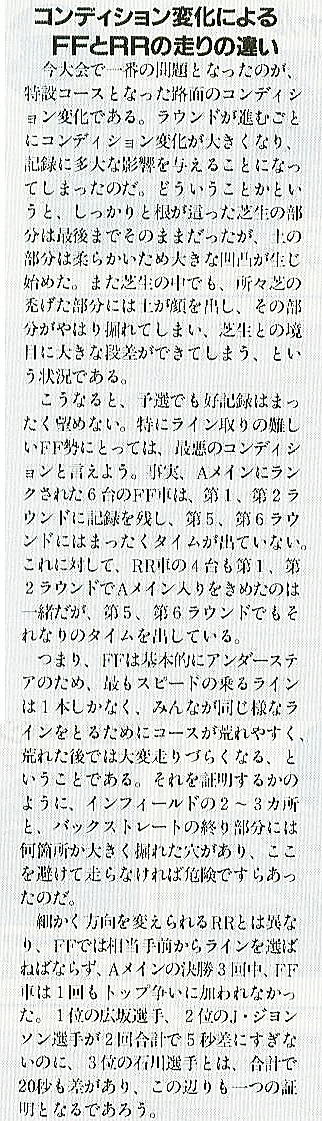 コンディション変化による
FFとRRの走りの違い
今大会で一番の問題となったのが、
特設コースとなった路面のコンディシ
ョン変化である。ラウンドが進むごと
にコンディション変化が大きくなり、
記録に多大な影響を与えることになっ
てしまったのだ。どういうことかとい
うと、しっかりと根が這った芝生の部
分は最後までそのままだったが、土の
部分は柔らかいため大きな凹凸が生じ
始めた。また芝生の中でも、所々芝の
禿げた部分には土が顔を出し、その部
分がやはり掘れてしまい、芝生との境
目に大きな段差ができてしまう、とい
う状況である。
こうなると、予選でも好記録はまっ
たく望めない。特にライン取りの難し
いFF勢にとっては、最悪のコンディシ
ョンと言えよう。事実、Aメインにラン
クされた6台のFF車は、第1、第2ラ
ウンドに記録を残し、第5、第6ラウ
ンドにはまったくタイムが出ていない。
これに対して、RR車の4台も第1、第
2ラウンドでAメイン入りをきめたのは
一緒だが、第5、第6ラウンドでもそ
れなりのタイムを出している。
つまり、FFは基本的にアンダーステ
アのため、最もスピードの乗るライン
は1本しかなく、みんなが同じ様なラ
インをとるためにコースが荒れやすく、
荒れた後では大変走りづらくなる、と
いうことである。それを証明するかの
ように、インフィールドの2〜3カ所
と、バックストレートの終り部分には
何箇所か大きく掘れた穴があり、ここ
を避けて走らなければ危険ですらあっ
たのだ。
細かく方向を変えられるRRとは異な
り、FFでは相当手前からラインを選ば
ねばならず、Aメインの決勝3回中、FF
車は1回もトップ争いに加われなかっ
た。1位の広坂選手、2位のJ・ジョン
ソン選手が2回合計で5秒差にすぎな
いのに、3位の石川選手とは、合計で
20秒も差があり、この辺りも一つの証
明となるであろう。